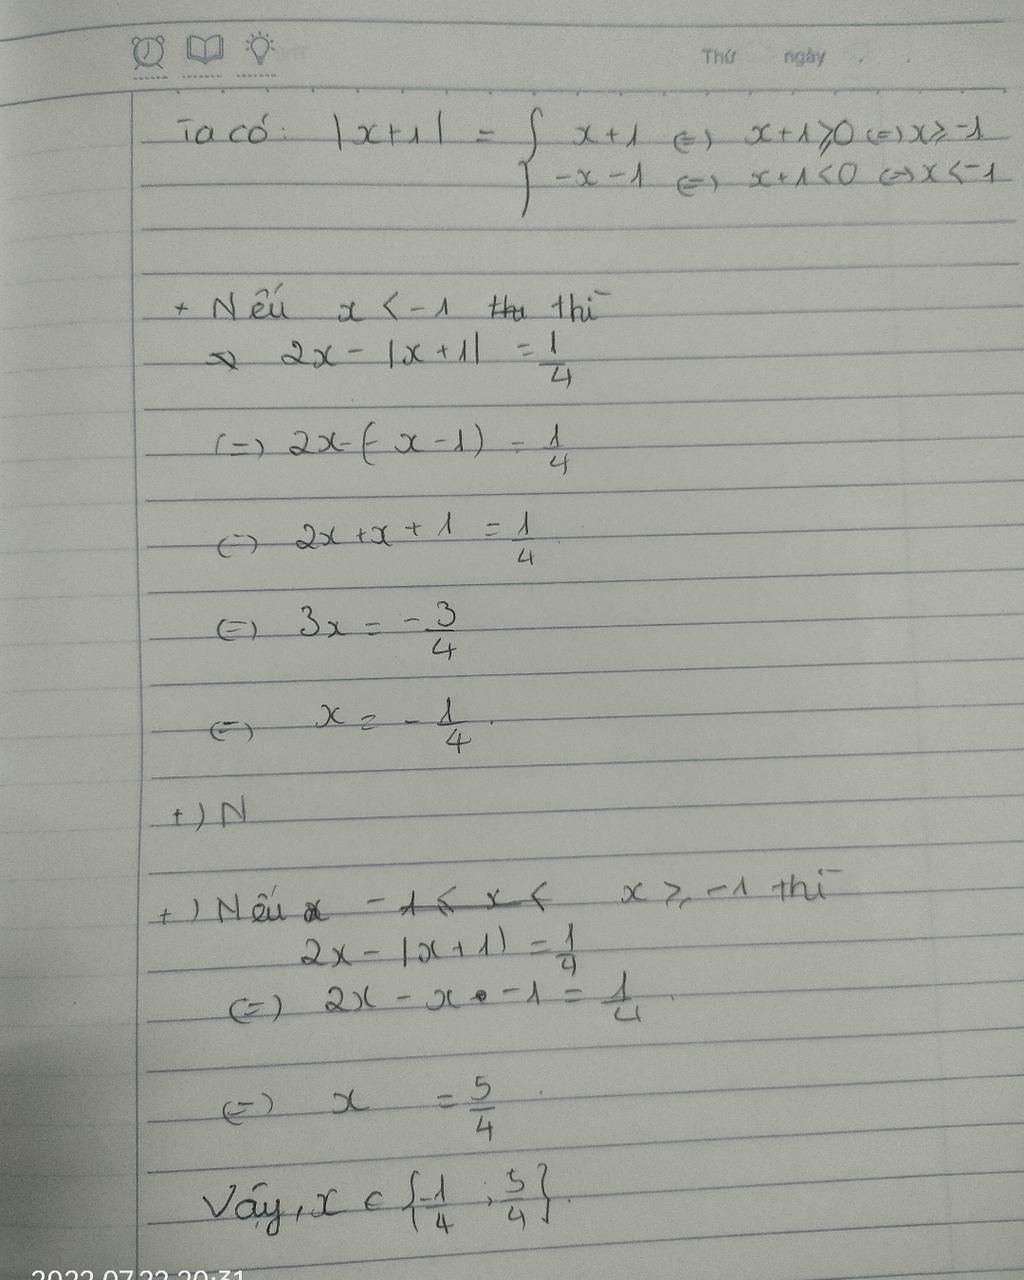 Thứ ngày
Ta có: |x+1| = { x+1 (=) x+1 ≥ 0 (=) x ≥ -1
-x -1 (=) x+1 < 0 (=) x < -1
+ Nếu x < -1 thì
2x - |x+1| = 1/4
(=) 2x-(-x-1) = 1/4
(=) 2x+x+1 = 1/4
(=) 3x = -3/4
(=) x = -1/4.
+) N
+) Nếu x ≥ -1 thì
2x - |x+1| = 1/4
(=) 2x - x -1 = 1/4.
(=) x = 5/4.
Vậy, x ∈ {-1/4; 5/4}.
2022.07.22 20:31